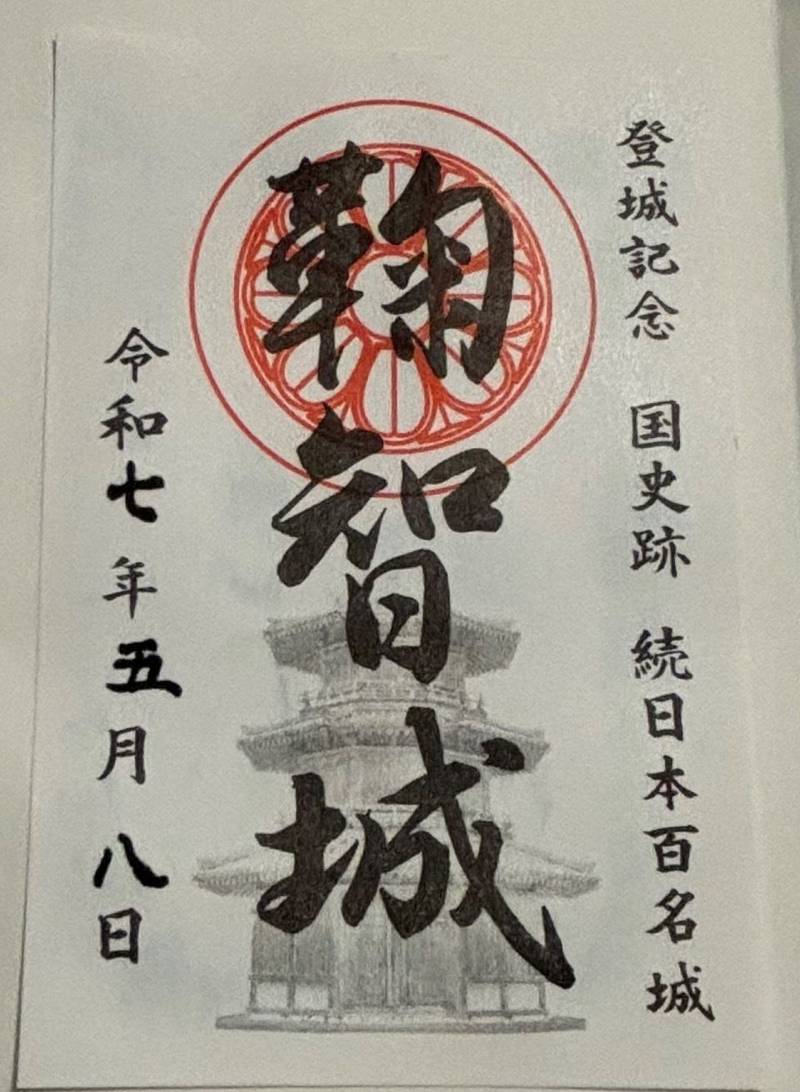 登城記念 国史跡 続日本百名城
鞠智城
令和七年五月八日